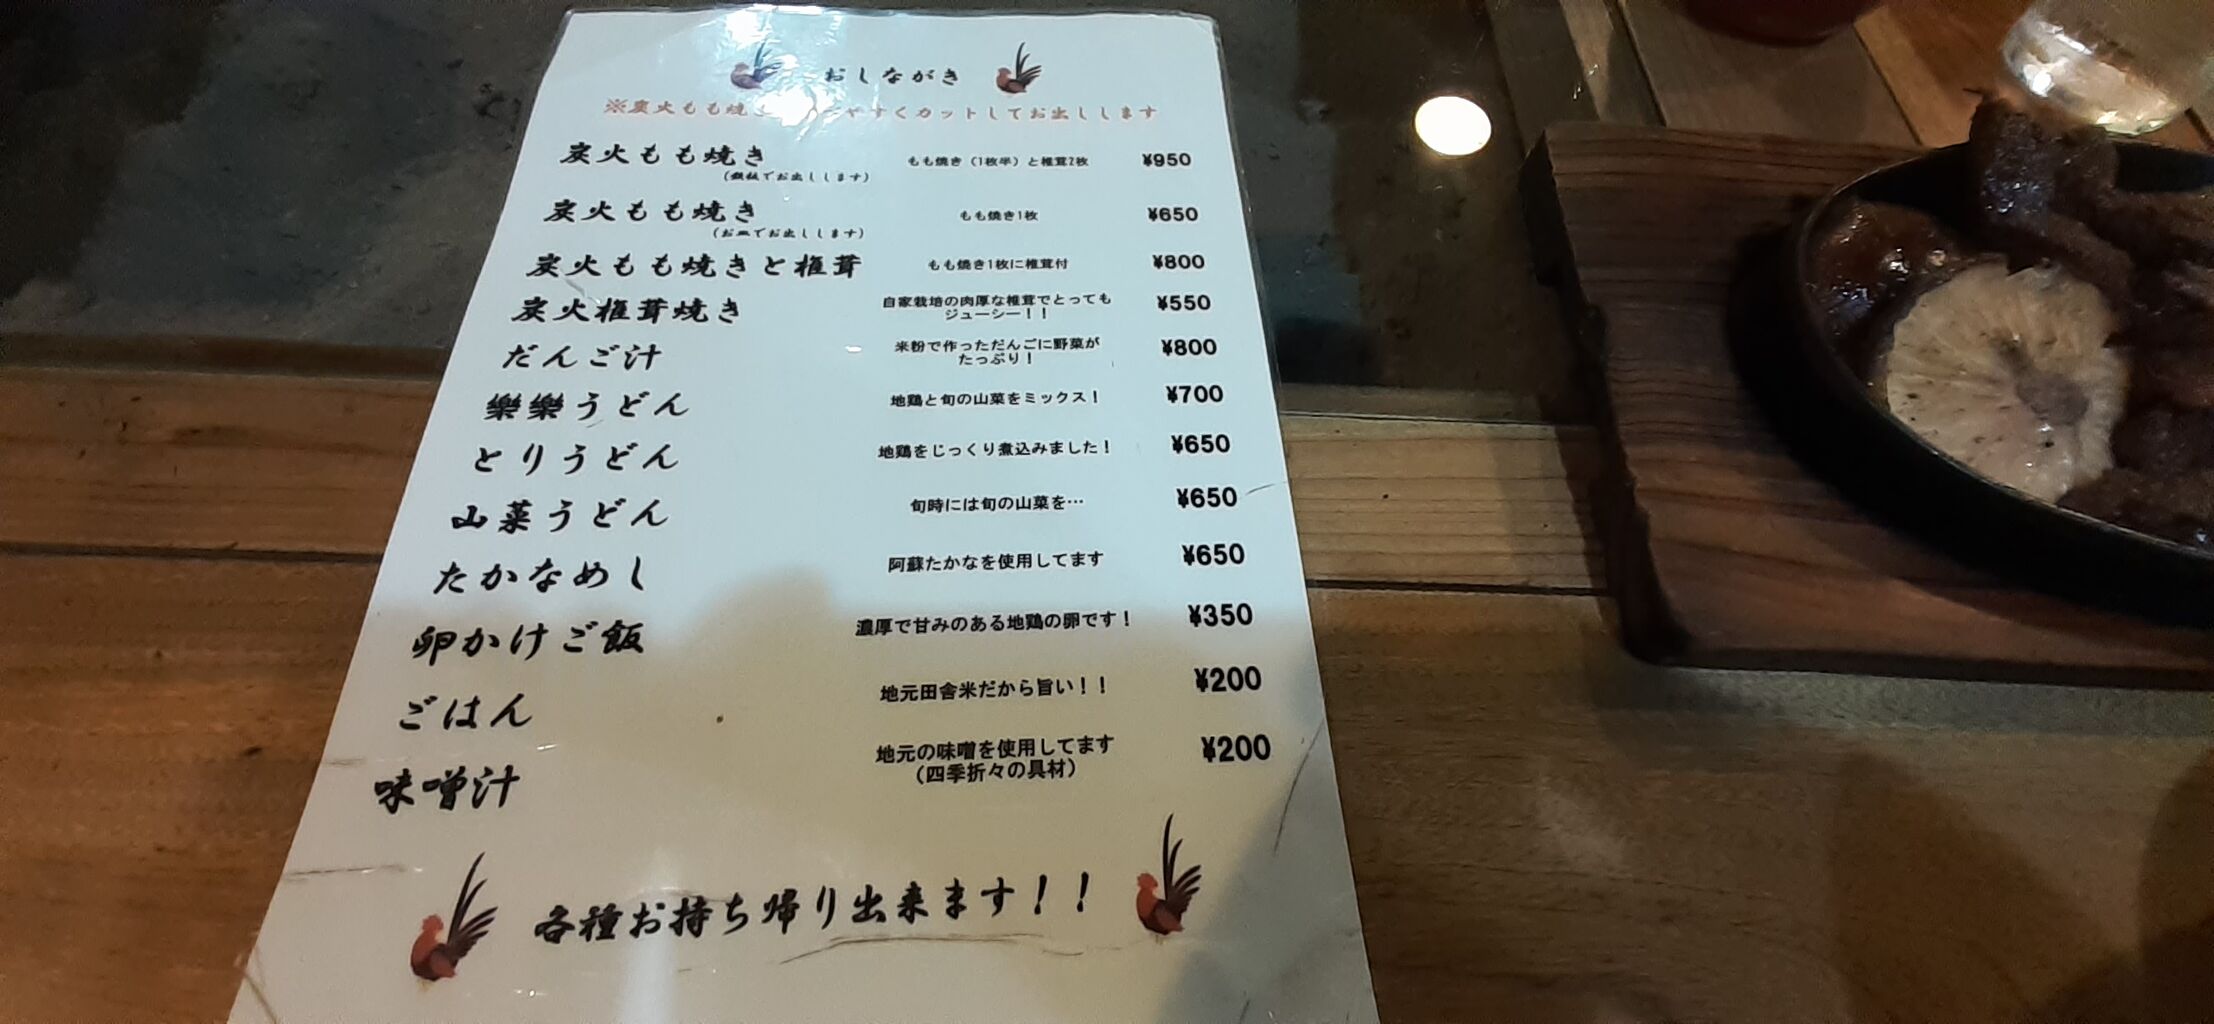 おしながき
※炭火もも焼き やすくカットしてお出しします
炭火もも焼き もも焼き（1枚半）と椎茸2枚 ¥950
（鉄板でお出しします）
炭火もも焼き もも焼き1枚 ¥650
（お皿でお出しします）
炭火もも焼きと椎茸 もも焼き1枚に椎茸付 ¥800
炭火椎茸焼き 自家栽培の肉厚な椎茸でとっても ¥550
ジューシー！！
だんご汁 米粉で作っただんごに野菜が ¥800
たっぷり！
樂樂うどん 地鶏と旬の山菜をミックス！ ¥700
とりうどん 地鶏をじっくり煮込みました！ ¥650
山菜うどん 旬時には旬の山菜を… ¥650
たかなめし 阿蘇たかなを使用してます ¥650
卵かけご飯 濃厚で甘みのある地鶏の卵です！ ¥350
ごはん 地元田舎米だから旨い！！ ¥200
味噌汁 地元の味噌を使用してます ¥200
（四季折々の具材）
各種お持ち帰り出来ます！！